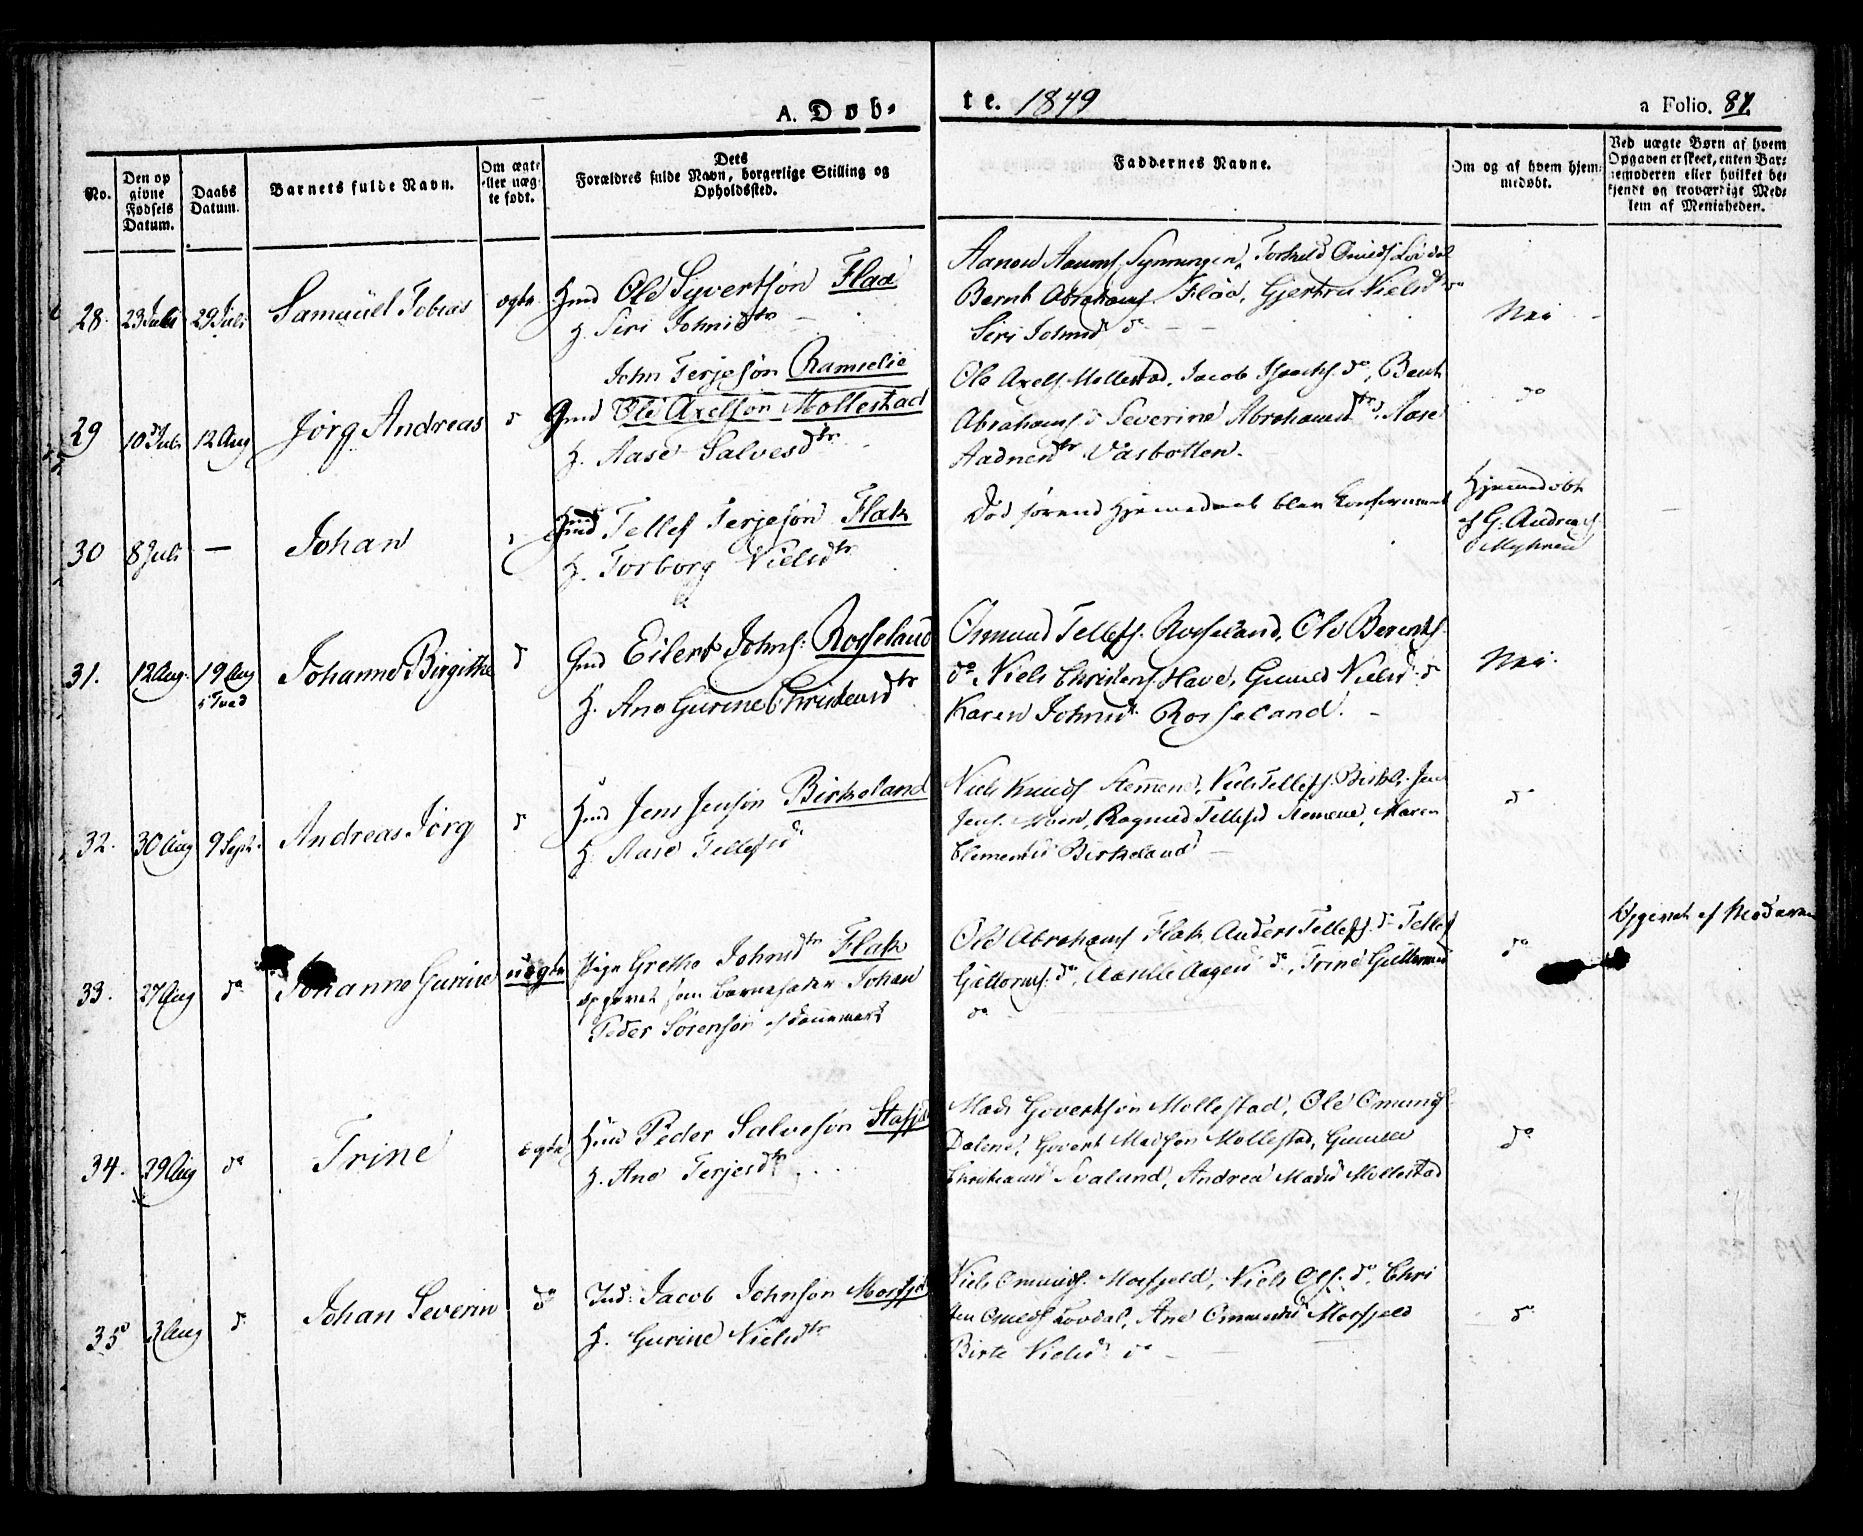 A. Døb-
te. 1849
a Folio. 87.
No.
Den op
givne
Fødsels
Datum.
Daabs
Datum.
Barnets fulde Navn.
Om ægte
eller uæg-
te født.
Dets
Forældres fulde Navn, borgerlige Stilling og
Opholdssted.
Faddernes Navne.
Om og af hvem hjem-
medøbt.
Ved uægte Børn af hvem
Opgaven er skeet, enten Bar-
nemoderen eller hvilket be-
kjendt og troværdigt Med-
lem af Menigheden.
28. 23 Juli 29 Juli Samuel Tobias ægte
Ole Syvertsøn Flaa
H. Siri Johnsdtr
Torkild Omeds Lövdal
Bernt Abrahams Flaa, Gjertru Nielsd do
Siri Johnsd do
Nei
29 10 Juli 12 Aug Jörg Andreas do
John Terjesøn Ramselie
Gmd Ole Axelsøn Mollestad
H. Aase Salvesdtr
Ole Axels. Mollestad, Jacob Isaachs. do, Bernt
Abrahams do Severine Abrahamsdtr do, Aase
Aadnesdtr Vasbotten.
do
30 8 Juli — Johan
Tellef Terjesøn Flak
H. Torborg Nielsdtr
Död förend Hjemmedaab blev Confirmeret
Hjemmedöbt
af G. Andreas
Myhren
31. 12 Aug. 19 Aug Johanne Birgithe do
i Tved
Gmd Eilert Johns: Rosseland
H. Ane Gurine Christensdtr
Omund Tellefs. Rosseland, Ole Berents.
do, Niels Christens Have, Gunild Nielsd. do
Karen Johnsd. Rosseland.
Nei.
32. 30 Aug 9 Sept. Andreas Jörg do
Hmd Jens Jensøn Birkeland
H. Aase Tellefsd
Niels Knuds Stemmene, Niels Tellefs. Birkel. Jens
Jens. Moen, Ragnild Tellefsd Stemene, Maren
Clementsd Birkeland
do
33. 27 Aug do Johanne Gurine uægte
Pige Grethe Johnsdtr Flak
opgivet som Barnefader Johan
Peder Sørensøn af Danmark
Ole Abrahams Flak, Anders Tellefs. do Tellef
Guttorms. do, Aasille Aagesd do, Trine Guttormsd
do
do
Opgivet af Moderen
34. 29 Aug do Trine ægte
Hmd Peder Salvesøn
H. Ane Terjesdtr
Mads Govertsøn Mollestad, Ole Omunds
Dalene, Govert Madsøn Mollestad, Gunild
Svaland, Andrea Madsd Mollestad
do
35 3 Aug do Johan Severin do
Ind: Jacob Johnsøn
H. Gurine Nielsdtr
Niels Omunds. Mosfjeld, Niels Ols. do, Chri
sten Omeds Lovdal, Ane Omundsd Mosfjeld
Birte Nielsd do
do